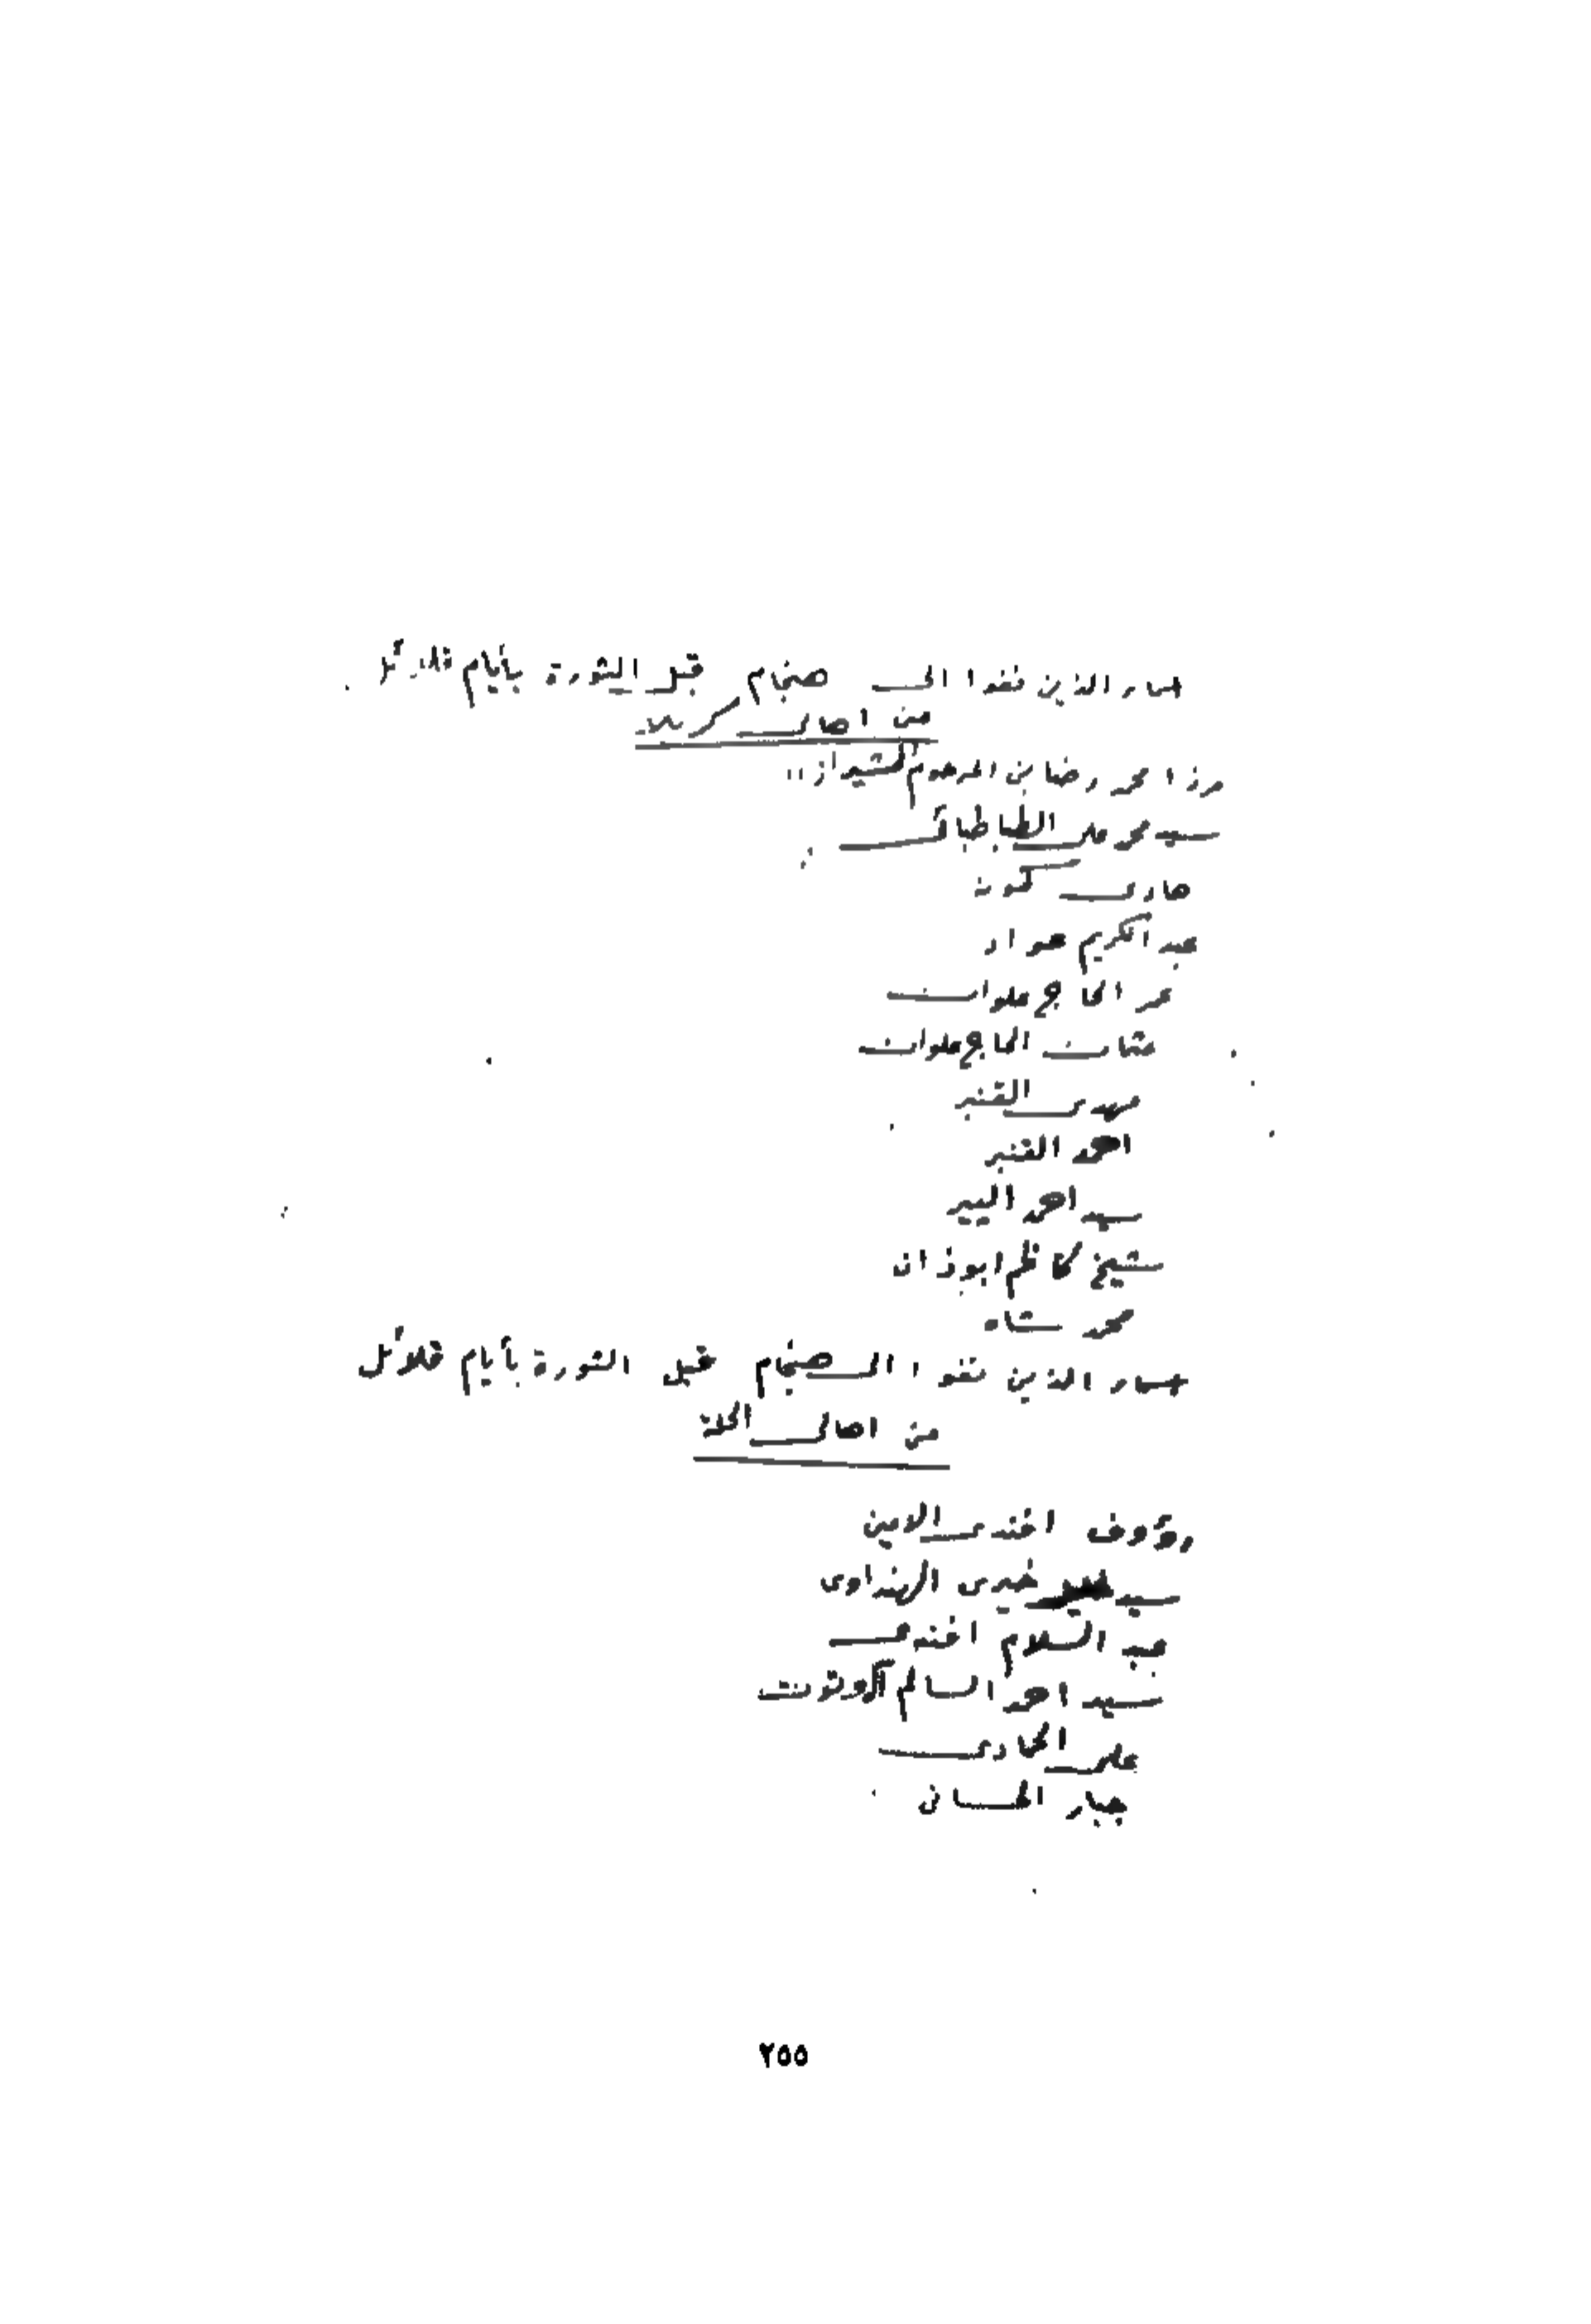 الذين نفوا الى هنجام قبل الثورة بأيام قلائل
من اهالي كربلاء
رزا محمد رضا بن المرحوم الشيرازي
سيد محمد علي الطباطبائي
عبد الكريم عواد
عمر الحاج علوان
عثمان الحاج علوان
مهدي القنبر
احمد القنبر
سيد احمد البير
شيخ كاظم ابو ذان
محمد شاه
الذين نفوا الى هنجام قبل الثورة بأيام قلائل
من اهالي الحلة
رؤوف افندي الامين
سيد خيري الهنداوي
عبد السلام افندي
سيد احمد السالم آلوتوت
علي الحمادي
جبار الحساني
٢٥٥